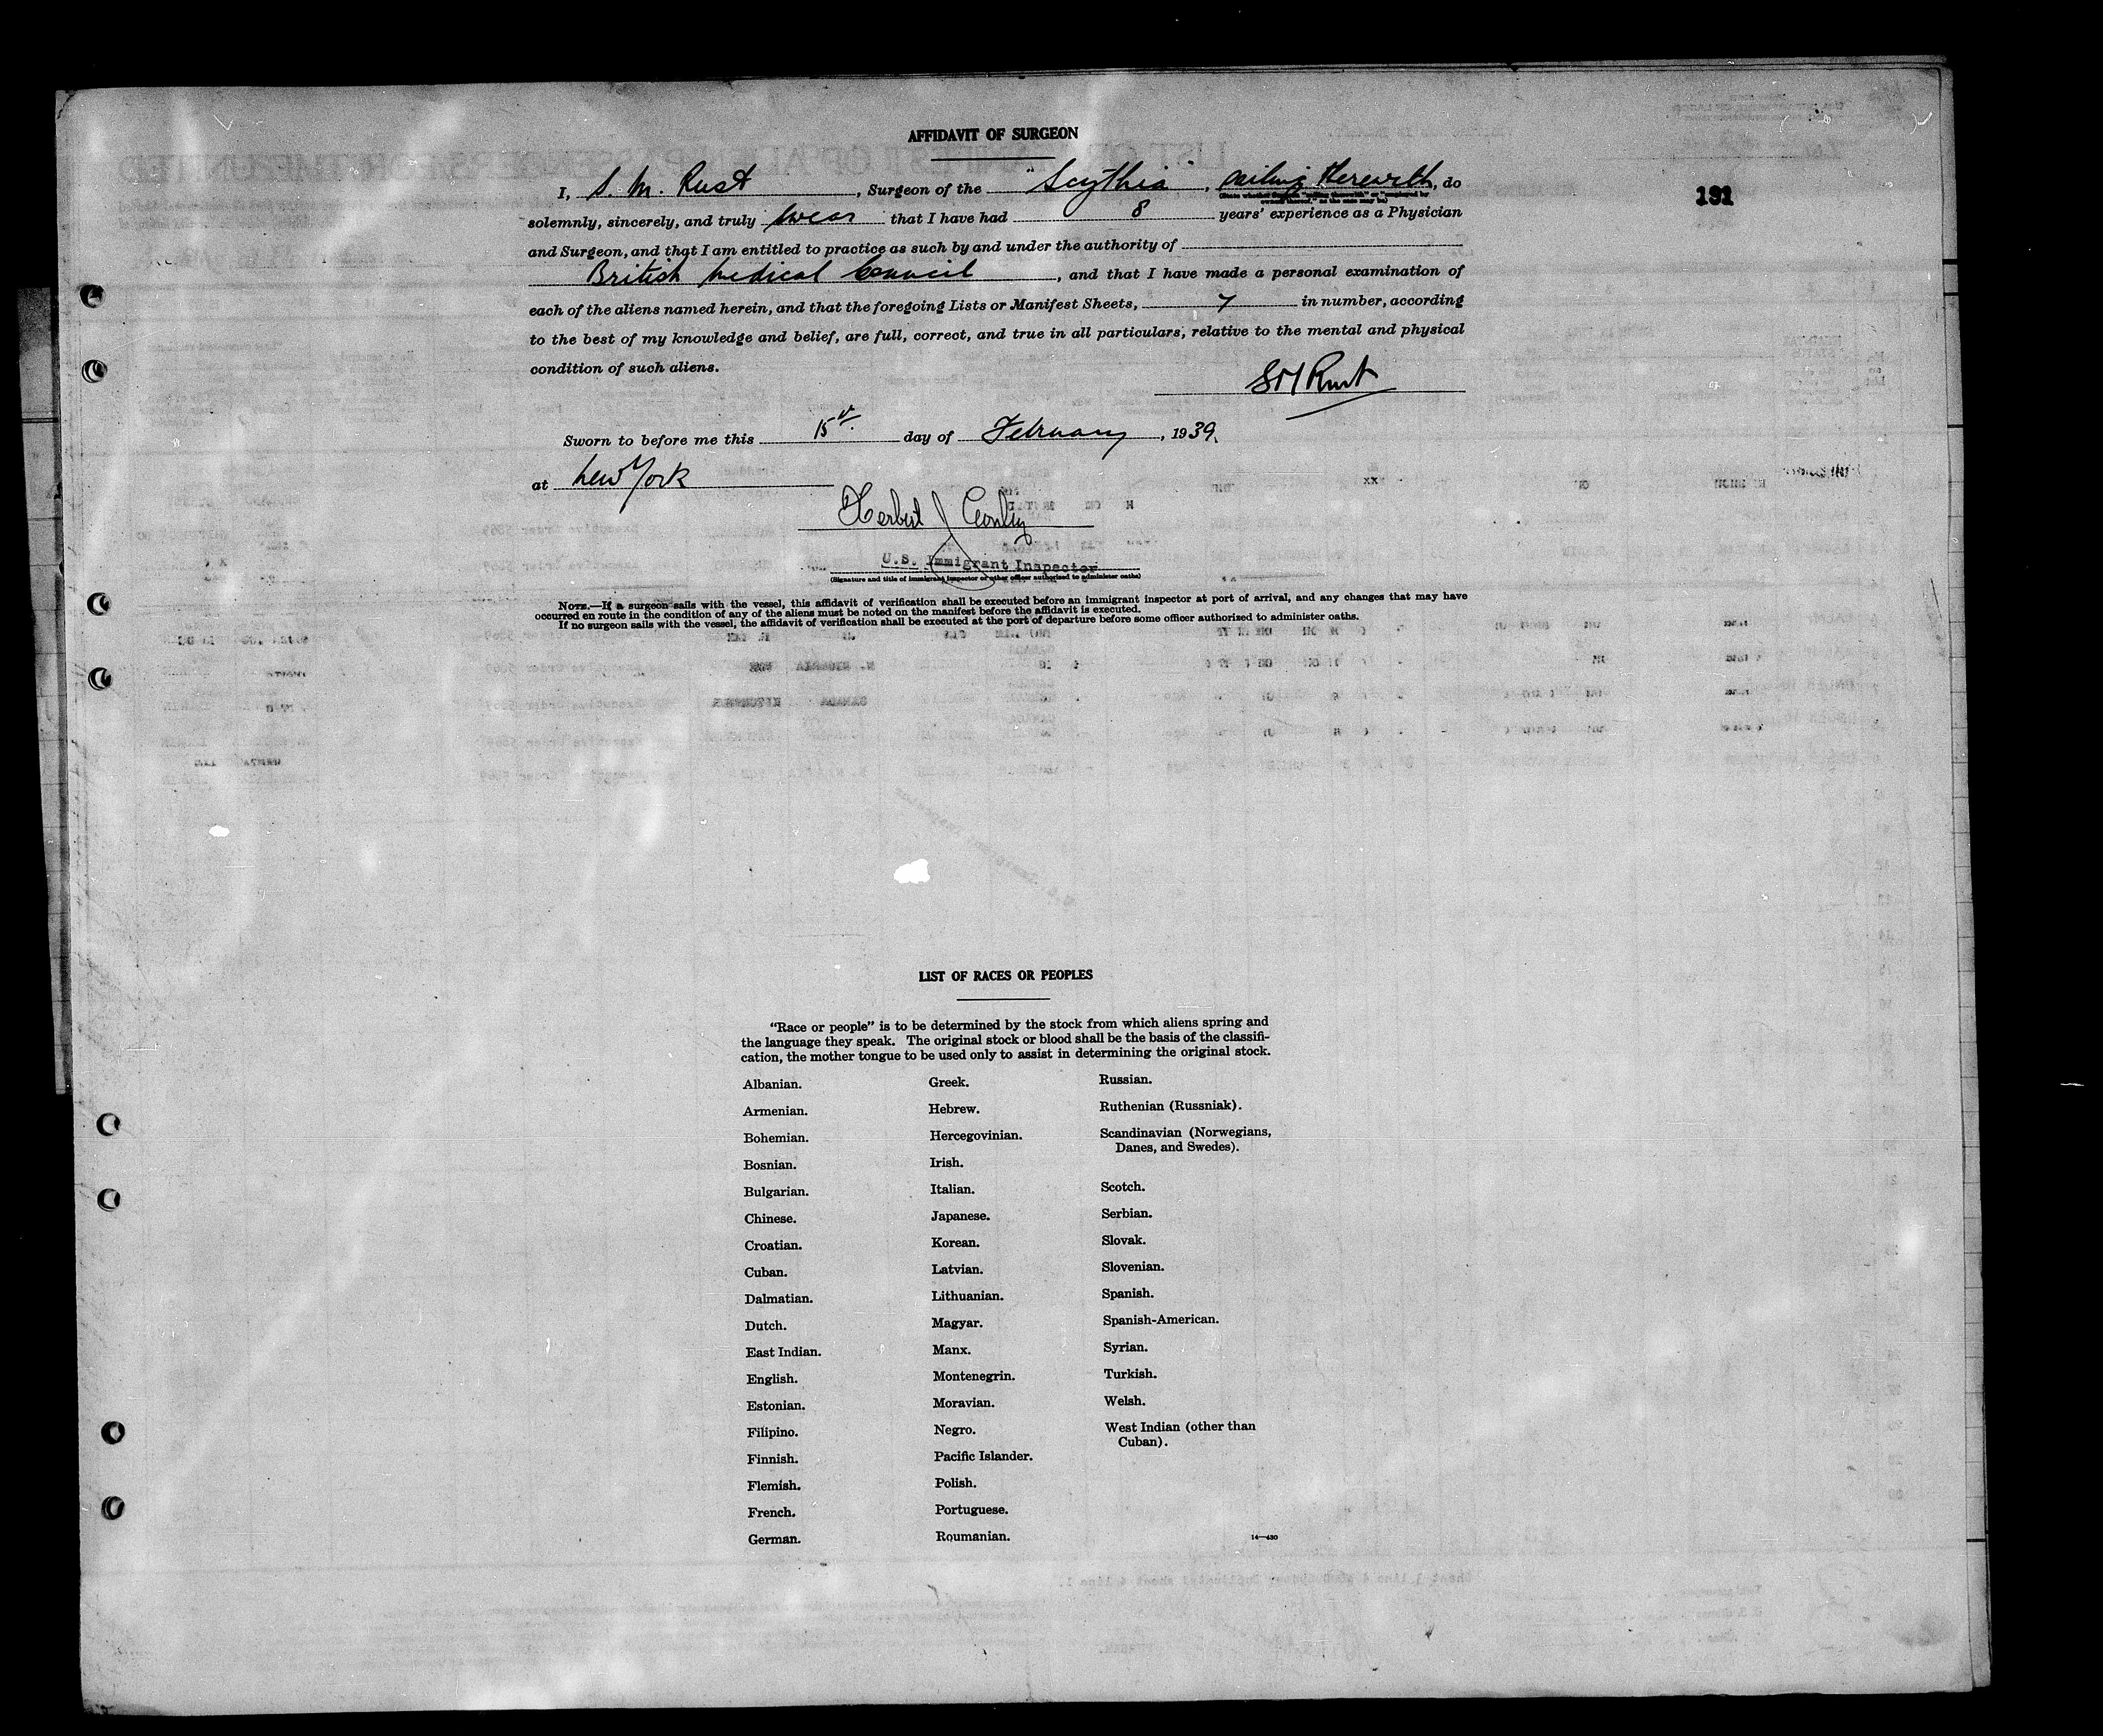 AFFIDAVIT OF SURGEON
191
I, S. M. Rust, Surgeon of the "Scythia", sailing therewith, do
(State whether Surgeon "sailing therewith" or "employed by
owners thereof," as the case may be)
solemnly, sincerely, and truly swear that I have had 8 years' experience as a Physician
and Surgeon, and that I am entitled to practice as such by and under the authority of
British Medical Council, and that I have made a personal examination of
each of the aliens named herein, and that the foregoing Lists or Manifest Sheets, 7 in number, according
to the best of my knowledge and belief, are full, correct, and true in all particulars, relative to the mental and physical
condition of such aliens.
SM Rust
Sworn to before me this 15th day of February, 1939.
at New York
Herbert J Conley
U.S. Immigrant Inspector
(Signature and title of immigrant inspector or other officer authorized to administer oaths)
NOTE.—If a surgeon sails with the vessel, this affidavit of verification shall be executed before an immigrant inspector at port of arrival, and any changes that may have
occurred en route in the condition of any of the aliens must be noted on the manifest before the affidavit is executed.
If no surgeon sails with the vessel, the affidavit of verification shall be executed at the port of departure before some officer authorized to administer oaths.
LIST OF RACES OR PEOPLES
"Race or people" is to be determined by the stock from which aliens spring and
the language they speak. The original stock or blood shall be the basis of the classifi-
cation, the mother tongue to be used only to assist in determining the original stock.
Albanian.
Armenian.
Bohemian.
Bosnian.
Bulgarian.
Chinese.
Croatian.
Cuban.
Dalmatian.
Dutch.
East Indian.
English.
Estonian.
Filipino.
Finnish.
Flemish.
French.
German.
Greek.
Hebrew.
Hercegovinian.
Irish.
Italian.
Japanese.
Korean.
Latvian.
Lithuanian.
Magyar.
Manx.
Montenegrin.
Moravian.
Negro.
Pacific Islander.
Polish.
Portuguese.
Roumanian.
Russian.
Ruthenian (Russniak).
Scandinavian (Norwegians,
Danes, and Swedes).
Scotch.
Serbian.
Slovak.
Slovenian.
Spanish.
Spanish-American.
Syrian.
Turkish.
Welsh.
West Indian (other than
Cuban).
14—430